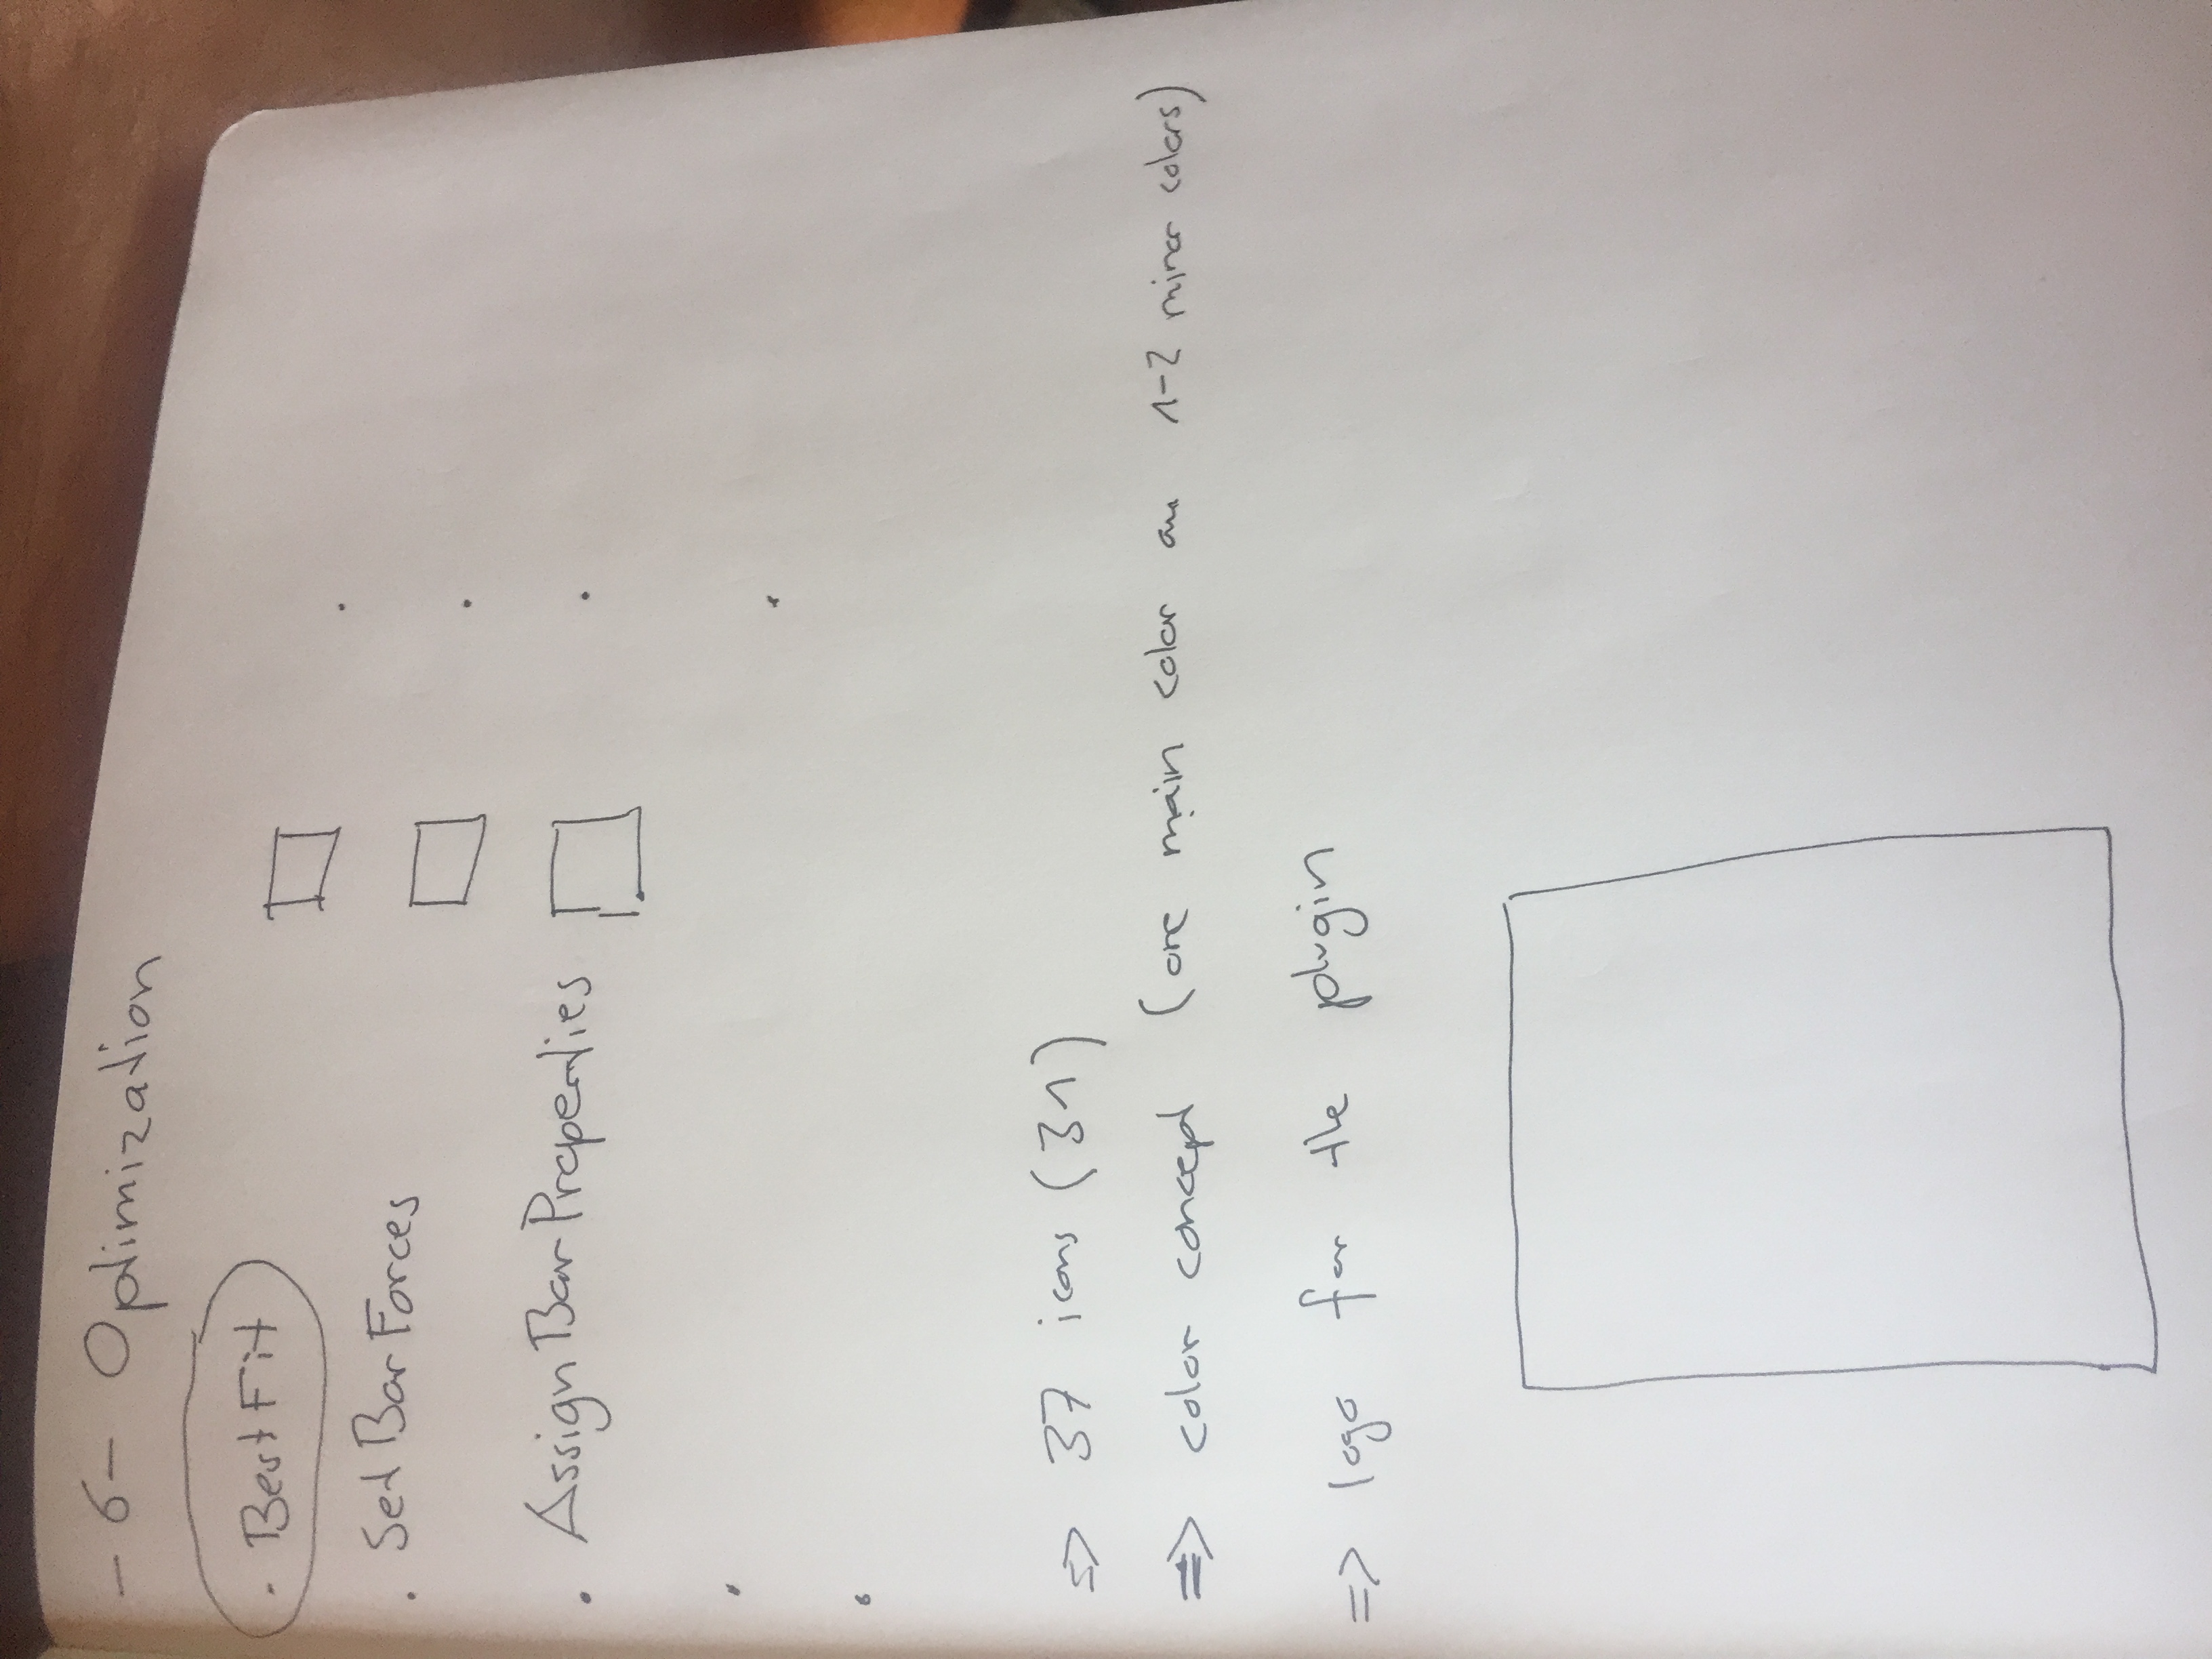 - 6 - Optimization
· Best Fit
· Set Bar Forces
· Assign Bar Properties
=> 37 icons (31)
=> color concept (one main color an 1-2 minor colors)
=> logo for the plugin